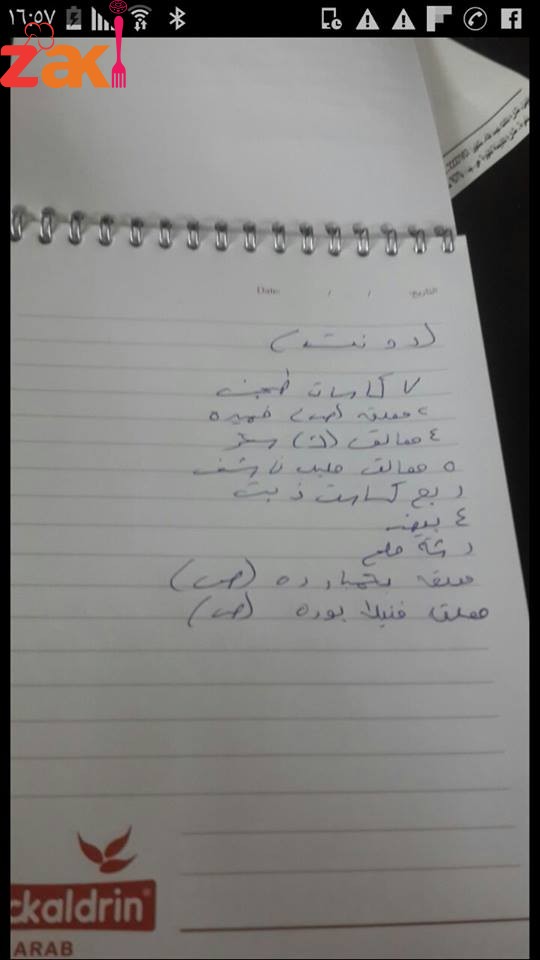 ١٦:٥٧
zaki
Date: / / التاريخ
(دونت)
٧ كاسات طحين
٢ معلقه (ص) خميره
٤ معالق (ك) سكر
٥ معالق حليب ناشف
ربع كاست زيت
٤ بيضه
رشة ملح
معلقه بكنباودره (ص)
معلقه فنيلا بودره (ص)
ckaldrin®
ARAB